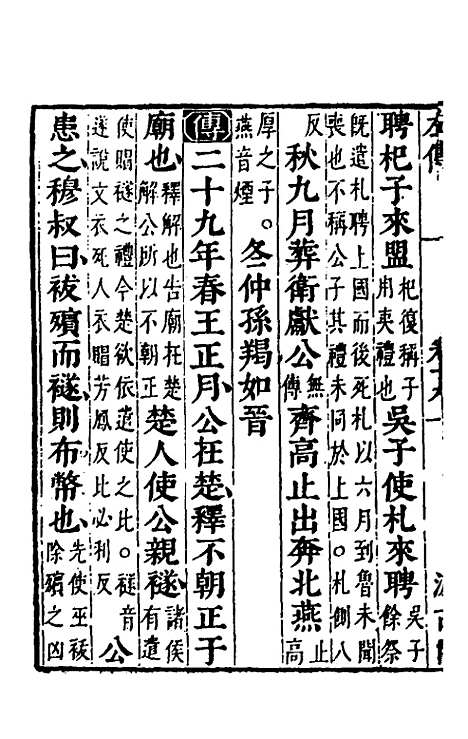 聘杞子來盟杞復稱子用夷禮也吳子使札來聘吳子餘祭
既遣札聘上國而後死札以六月到魯未聞喪也不稱公子其禮未同於上國。札側八
反秋九月葬衛獻公無傳齊高止出奔北燕止高
厚之子。燕音煙冬仲孫羯如晉
傳二十九年春王正月公在楚釋不朝正于
廟也釋解也告廟在楚解公所以不朝正楚人使公親襚諸侯有遣
使賵襚之禮今楚欲依遣使之比。襚音遂說文衣死人衣賵芳鳳反比必利反公
患之穆叔曰祓殯而襚則布幣也先使巫祓除殯之凶